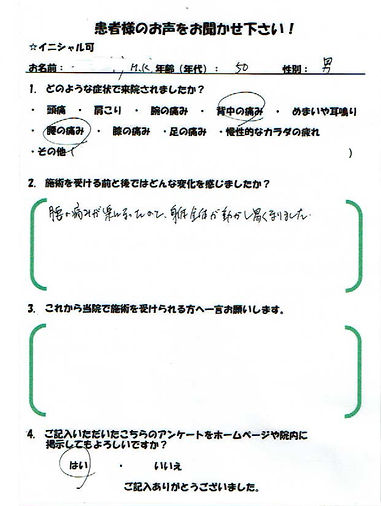 患者様のお声をお聞かせ下さい！
☆イニシャル可
お名前： H.K 年齢（年代）： 50 性別： 男
1. どのような症状で来院されましたか？
・ 頭痛 ・ 肩こり ・ 腕の痛み ・ 背中の痛み ・ めまいや耳鳴り
・ 腰の痛み ・ 膝の痛み ・足の痛み ・慢性的なカラダの疲れ
・その他（ ）
2. 施術を受ける前と後ではどんな変化を感じましたか？
腰の痛みが楽になったので、身体全体が動かし易くなりました.
3. これから当院で施術を受けられる方へ一言お願いします。
4. ご記入いただいたこちらのアンケートをホームページや院内に
掲示してもよろしいですか？
はい ・ いいえ
ご記入ありがとうございました。